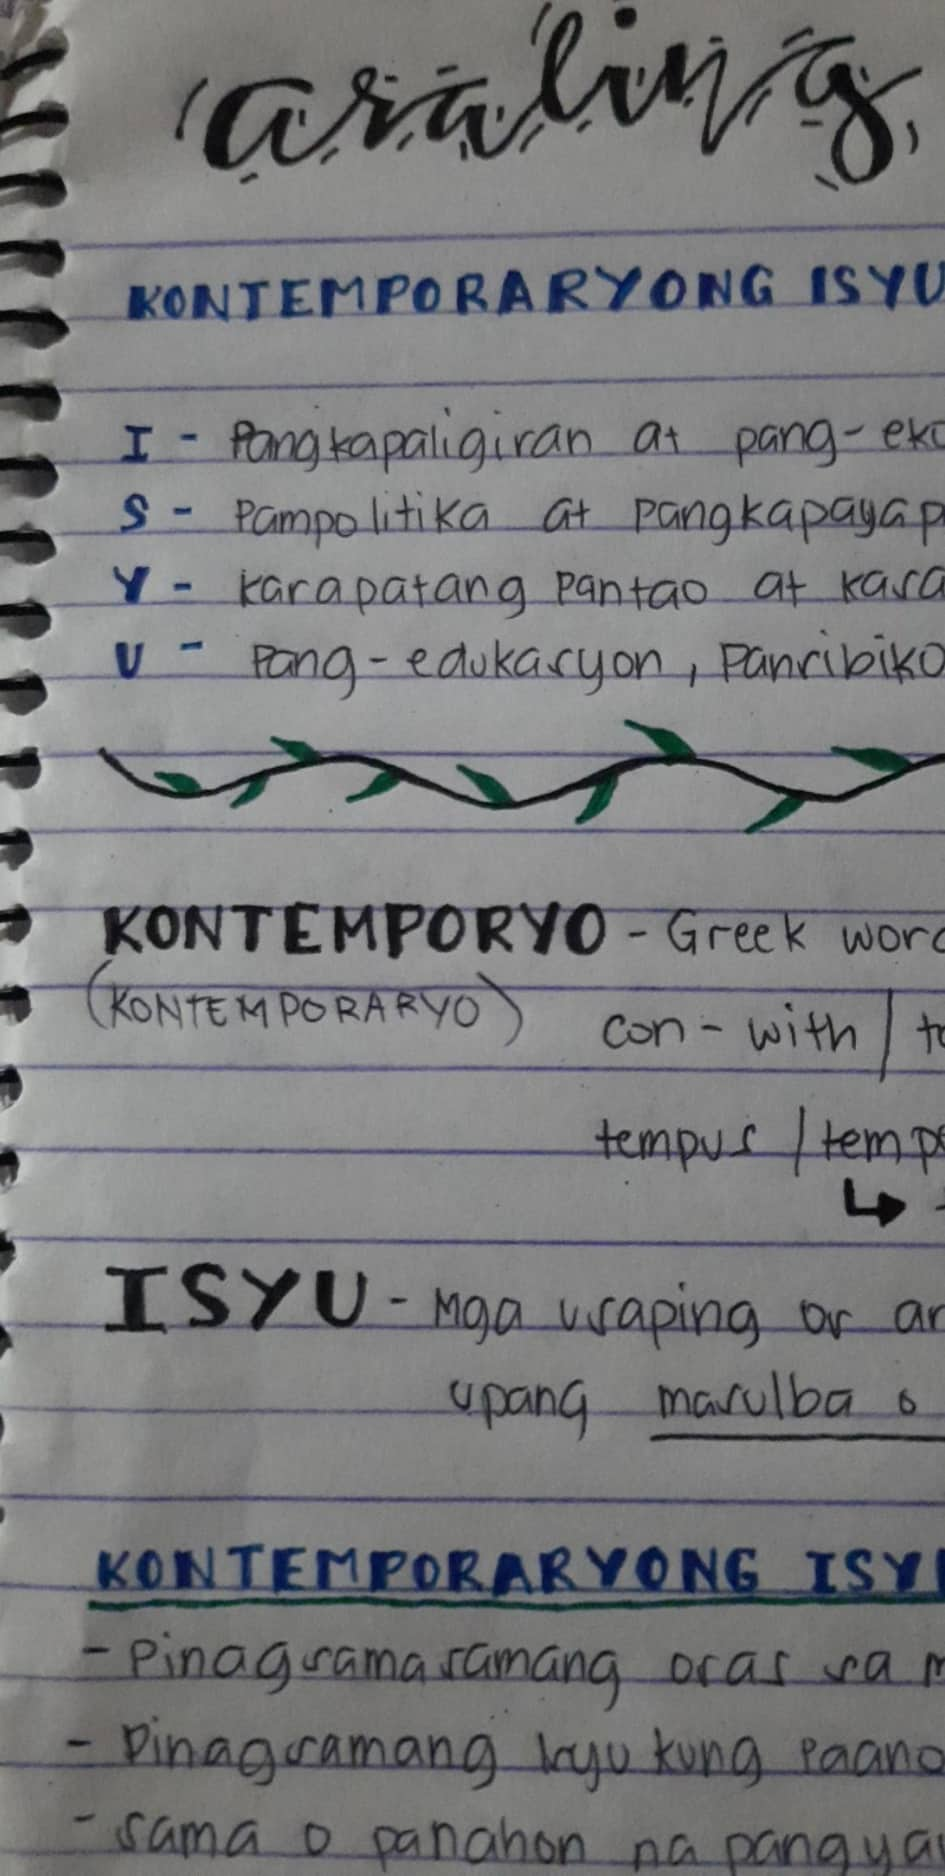 araling
KONTEMPORARYONG ISYU
I - Pangkapaligiran at pang-eko
S - Pampolitika at Pangkapayap
Y - Karapatang Pantao at Kasa
U - Pang-edukasyon, Pansibiko
KONTEMPORYO - Greek word
(KONTEMPORARYO) con - with / to
tempus / temp
ISYU - Mga usaping or an
upang masulba o
KONTEMPORARYONG ISYU
- Pinagsamasamang oras sa m
- Pinagsamang isyu kung Paano
- sama o panahon na pangya